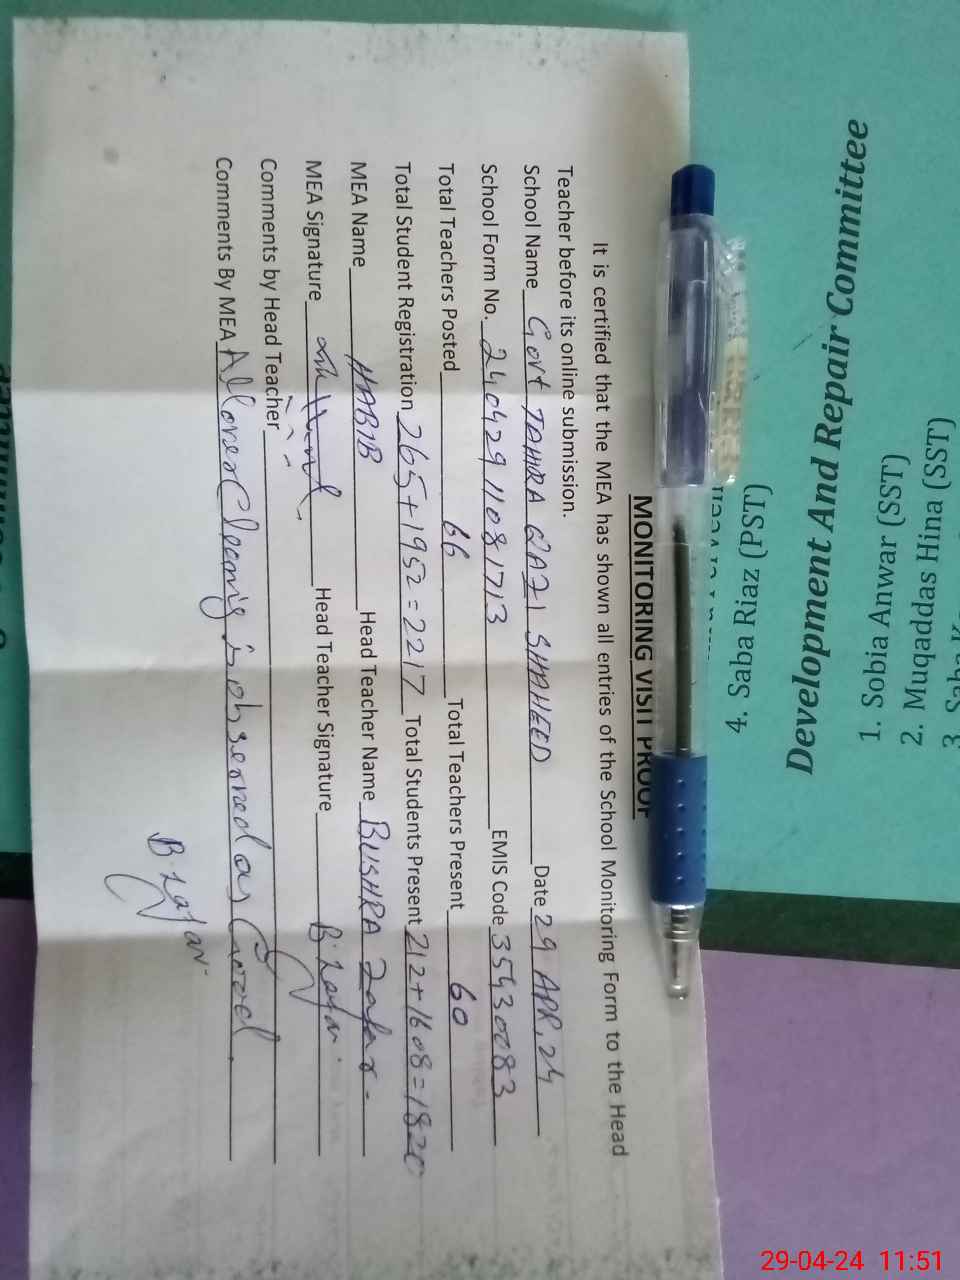 MONITORING VISIT PROOF
It is certified that the MEA has shown all entries of the School Monitoring Form to the Head
Teacher before its online submission.
School Name Govt TAHIRA QAZI SHAHEED Date 29 APR, 24
School Form No. 24042911081713 EMIS Code 35430083
Total Teachers Posted 66 Total Teachers Present 60
Total Student Registration 265+1952=2217 Total Students Present 212+1608=1820
MEA Name HABIB Head Teacher Name BUSHRA Zafar
MEA Signature Head Teacher Signature B.Zafar
Comments by Head Teacher
Comments By MEA All over Cleaning is observed as Good.
B.Zafar
4. Saba Riaz (PST)
Development And Repair Committee
1. Sobia Anwar (SST)
2. Muqaddas Hina (SST)
3.
29-04-24 11:51